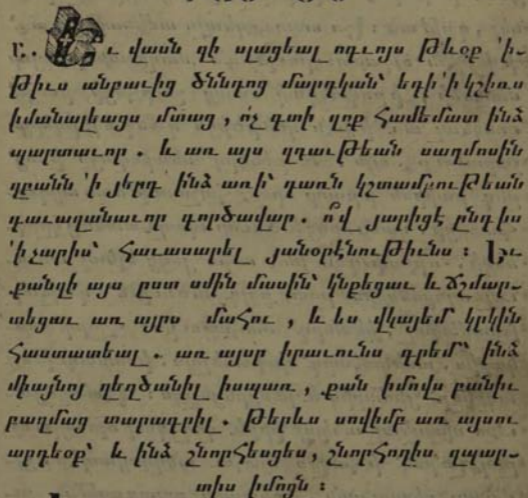 Ր․. Եւ վասն զի սլացեալ ոգւոյս թևօք 'ի-
թիւս անբաւից ծննդոց մարդկան՝ եդի 'ի կշիռս
իմանալեացս մտաց, ո՛չ գտի զոք համեմատ ինձ
պարտաւոր. և առ այս զդաւթեան սաղմոսին
զբանն 'ի յերգ ինձ առի՝ դառն կշտամբութեան
գաւազանաւոր գործավար. ո՞վ յարիցէ ընդիս
'ի չարիս՝ հաւասարել յանօրէնութիւնս: Իւ-
քանզի այս ըստ ամին մասին՝ կնքեցաւ և ճշմար-
տեցաւ առ այրս մահու, և ես վկայեմ կրկին
հաստատեալ. առ այսր իրաւունս գրեմ՝ ինձ
միայնոյ զեղծանիլ իսպառ, քան իմովս բանիւ
բազմաց տարագրիլ. թերևս սովիմբ առ այսու
արդեօք՝ և ինձ շնորհեսցես, շնորհողիս զպար-
տիս իմոյն: